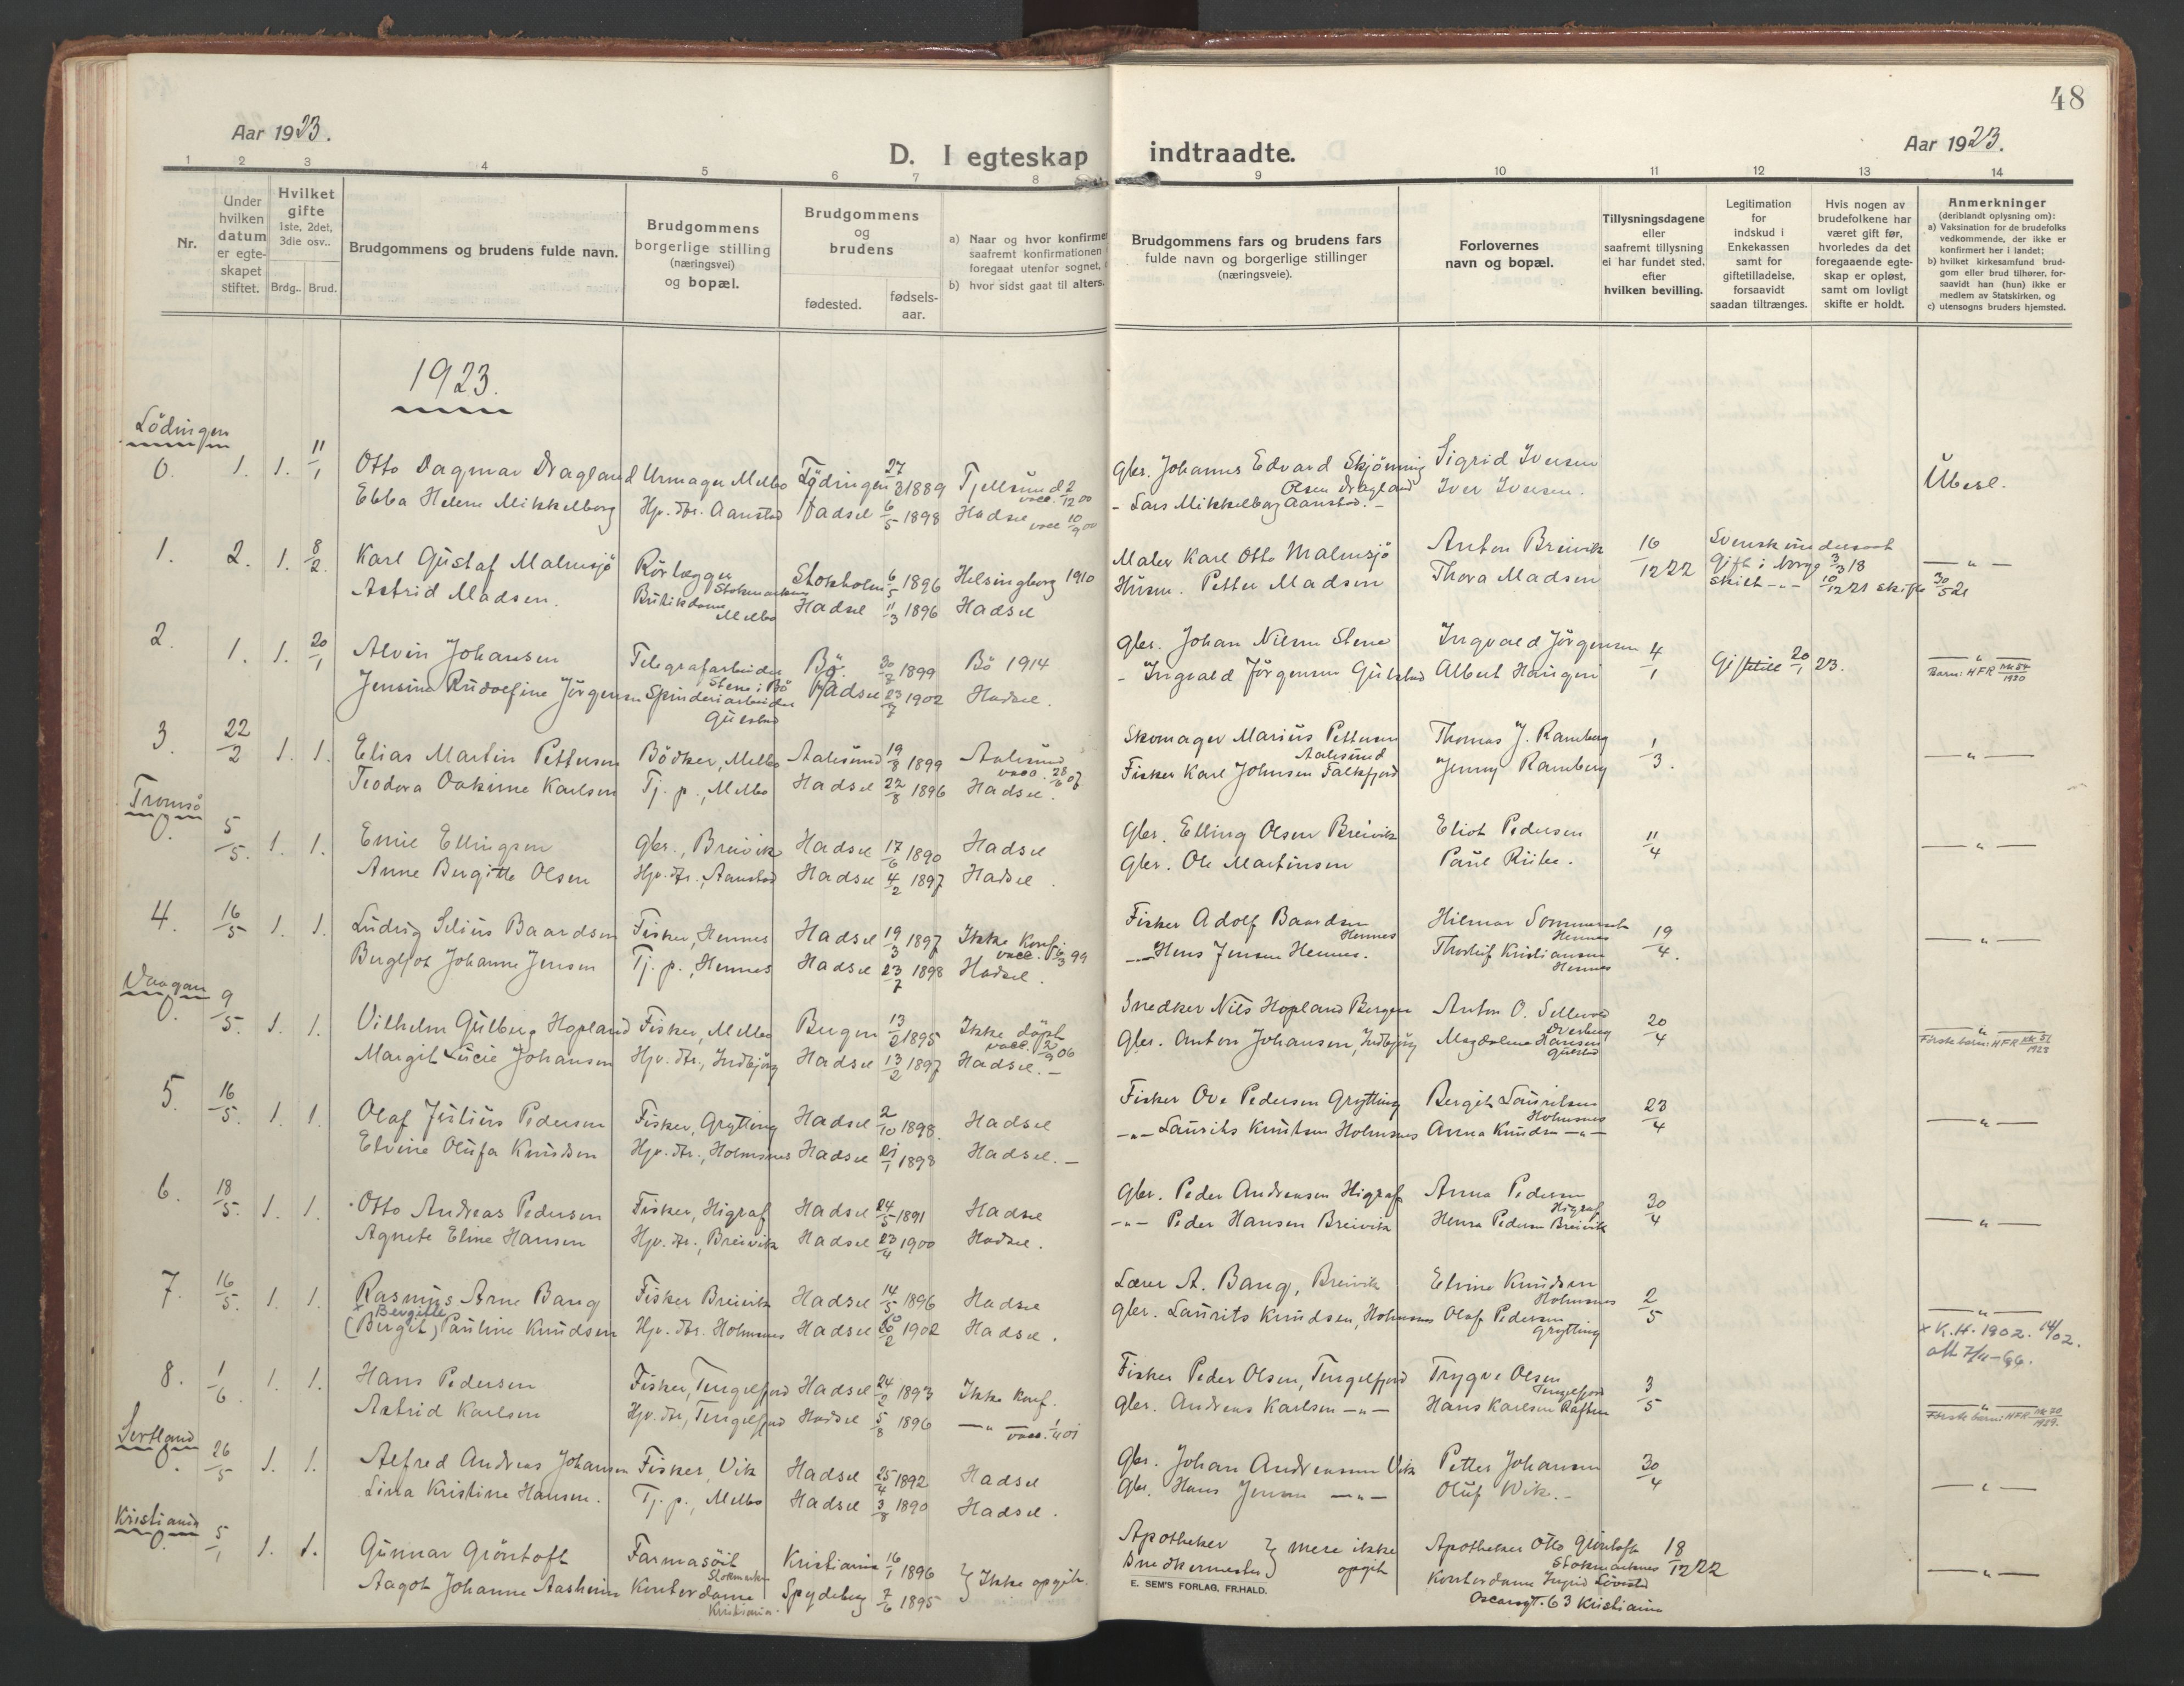 48
Aar 1923.
D. I egteskap indtraadte.
Aar 1923.
1 2 3 4 5 6 7 8 9 10 11 12 13 14
Nr.
Under hvilken datum er egte-skapet stiftet.
Hvilket gifte 1ste, 2det, 3die osv..
Brdg.. Brud.
Brudgommens og brudens fulde navn.
Brudgommens borgerlige stilling (næringsvei) og bopæl.
Brudgommens og brudens
fødested. fødsels-aar.
a) Naar og hvor konfirme
saafremt konfirmationen
foregaat utenfor sognet,
b) hvor sidst gaat til alters.
Brudgommens fars og brudens fars
fulde navn og borgerlige stillinger
(næringsveie).
Forlovernes
navn og bopæl.
Tillysningsdagene
eller
saafremt tillysning
ei har fundet sted.
efter
hvilken bevilling.
Legitimation
for
indskud i
Enkekassen
samt for
giftetilladelse,
forsaavidt
saadan tiltrænges.
Hvis nogen av
brudefolkene har
været gift før,
hvorledes da det
foregaaende egte-
skap er opløst,
samt om lovligt
skifte er holdt.
Anmerkninger
(deriblandt oplysning om):
a) Vaksination for de brudefolks
vedkommende, der ikke er
konfirmert her i landet;
b) hvilket kirkesamfund brud-
gom eller brud tilhører, for-
saavidt han (hun) ikke er
medlem av Statskirken, og
c) utensogns bruders hjemsted.
1923.
Lödingen
0. 1. 1. 11/1 Otto Dagmar Dragland Urmager Melbo Lödingen 27/3 1889 Tjellsund vacc. 2/12 00 Gbr. Johannes Edvard Skjönning Olsen Dragland Sigrid Iversen Ubesl.
Ebba Helene Mikkelborg Hj. dtr. Aanstad Hadsel 6/5 1898 Hadsel vacc 10/9 00 - Lars Mikkelborg Aanstad. - Iver Iversen.
1. 2. 1. 8/2 Karl Gustaf Malmsjö Rörlægger Stokmarknes Stokholm 6/5 1896 Helsingborg 1910 Maler Karl Otto Malmsjö Anton Breivik 16/12 22 Svensk undersaat Gift i Norge 3/3 18 — " —
Astrid Madsen. Butikdame Melbo Hadsel 11/3 1896 Hadsel Husm. Petter Madsen Thora Madsen skilt - " - 10/12 21 skifte 30/5 21
2. 1. 1. 20/1 Alvin Johansen Telegrafarbeider Stene i Bö Bö 30/8 1899 Bö 1914 Gbr. Johan Nilsen Stene Ingvald Jörgensen 4/1 20/1 23. — " —
Jensine Rudolfine Jörgensen Spinderiarbeider Gulstad Hadsel 23/7 1902 Hadsel. - Ingvald Jörgensen Gulstad Albert Haugen Barn: HFR 1920
3. 22/2 1. 1. Elias Martin Pettersen Bödker, Melbo Aalesund 19/8 1899 Aalesund vacc. Skomager Marius Pettersen Aalesund Thomas J. Ramberg 1/3. — " —
Teodora Oakime Karlsen Tj. p., Melbo Hadsel 22/8 1896 Hadsel. Fisker Karl Johnsen Falkfjord Jenny Ramberg
Tromsö
0. 5/5. 1. 1. Emil Ellingsen Gbr., Breivik Hadsel 17/6 1890 Hadsel Gbr. Elling Olsen Breivik Eliot Pedersen 11/4 — " —
Anne Bergitte Olsen Hj. dtr., Aanstad Hadsel 4/2 1897 Hadsel. Gbr. Ole Martinsen Paul
4. 16/5 1. 1. Ludvig Selius Baardsen Fisker, Hennes Hadsel 19/3 1897 Ikke konf. vacc. 99 Fisker Adolf Baardsen Hennes Hilmar Sommerset Hennes 19/4. — " —
Bergljot Johanne Jensen Tj. p., Hennes Hadsel 23/7 1898 Hadsel. - " - Hans Jensen Hennes. Thorleif Kristiansen Hennes
Vaagan
0. 9/5. 1. 1. Vilhelm Gulberg Hopland Fisker, Melbo Bergen 13/2 1895 Ikke döpt vacc. 06 Snedker Nils Hopland Bergen Anton O. 20/4 — " —
Margit Lucie Johansen Hj. dtr., Indbjörg Hadsel 13/2 1897 Hadsel. - Gbr. Anton Johansen, Indbjörg Magdalene Hansen Gulstad Förste barn: HFR 1923
5. 16/5. 1. 1. Olaf Julius Pedersen Fisker, Grytting Hadsel 2/10 1898. Hadsel Fisker Ove Pedersen Grytting Bergit Lauritsen Holmsnes 23/4 — " —
Elvine Olufa Knudsen Hj. dtr., Holmsnes Hadsel 21/1 1898 Hadsel. - - " - Laurits Knutsen Holmsnes Anna Knudsen - " -
6. 18/5. 1. 1. Otto Andreas Pedersen Fisker, Higraf Hadsel 24/5 1891 Hadsel Gbr. Peder Andreasen Higraf Anna Pedersen Higraf 30/4 — " —
Agnete Eline Hansen Hj. dtr., Breivik Hadsel 23/4 1900 Hadsel. - " - Peder Hansen Breivik Henra Pedersen Breivik
7. 16/5. 1. 1. Rasmus Arne Bang Fisker Breivik Hadsel 14/5 1896 Hadsel Lærer A. Bang, Breivik Elvine Knudsen Holmsnes 2/5 — " —
x Bergitte
(Bergit) Pauline Knudsen Hj. dtr. Holmsnes Hadsel 1902 Hadsel. Gbr. Laurits Knudsen, Holmsnes Olaf Pedersen Grytting x K.H. 1902. 14/02.
8. 1/6 1. 1. Hans Pedersen Fisker, Tengelfjord Hadsel 24/2 1893 Ikke konf. Fisker Peder Olsen, Tengelfjord Trygve Olsen Tengelfjord 3/5 — " —
Astrid Karlsen Hj. dtr., Tengelfjord Hadsel 5/8 1896 — " — vacc. Gbr. Andreas Karlsen - " - Hans Karlsen Raften Förste barn: HFR 1929.
Sortland
0. 26/5 1. 1. Alfred Andreas Johansen Fisker, Vik Hadsel 25/4 1892 Hadsel Gbr. Johan Andreassen Vik Petter Johansen 30/4 — " —
Lina Kristine Hansen. Tj. p., Melbo Hadsel 3/8 1890 Hadsel. Gbr. Hans Jensen - " - Oluf Wik. -
Kristiania
0. 5/1 1. 1. Gunnar Gröntoft Farmasöit Stokmarkn Kristiania 16/1 1896 } Ikke opgit. Apotheker } mere ikke opgit Apotheker Otto Gröntoft Stokmarknes 18/12 22 — " —
Aagot Johanne Aasheim Kontordame Kristiania. Spydeberg 7/6 1895 Snedkermester Kontordame Ingrid Oscarsgt. 63 Kristiania
E. SEM'S FORLAG, FR.HALD.